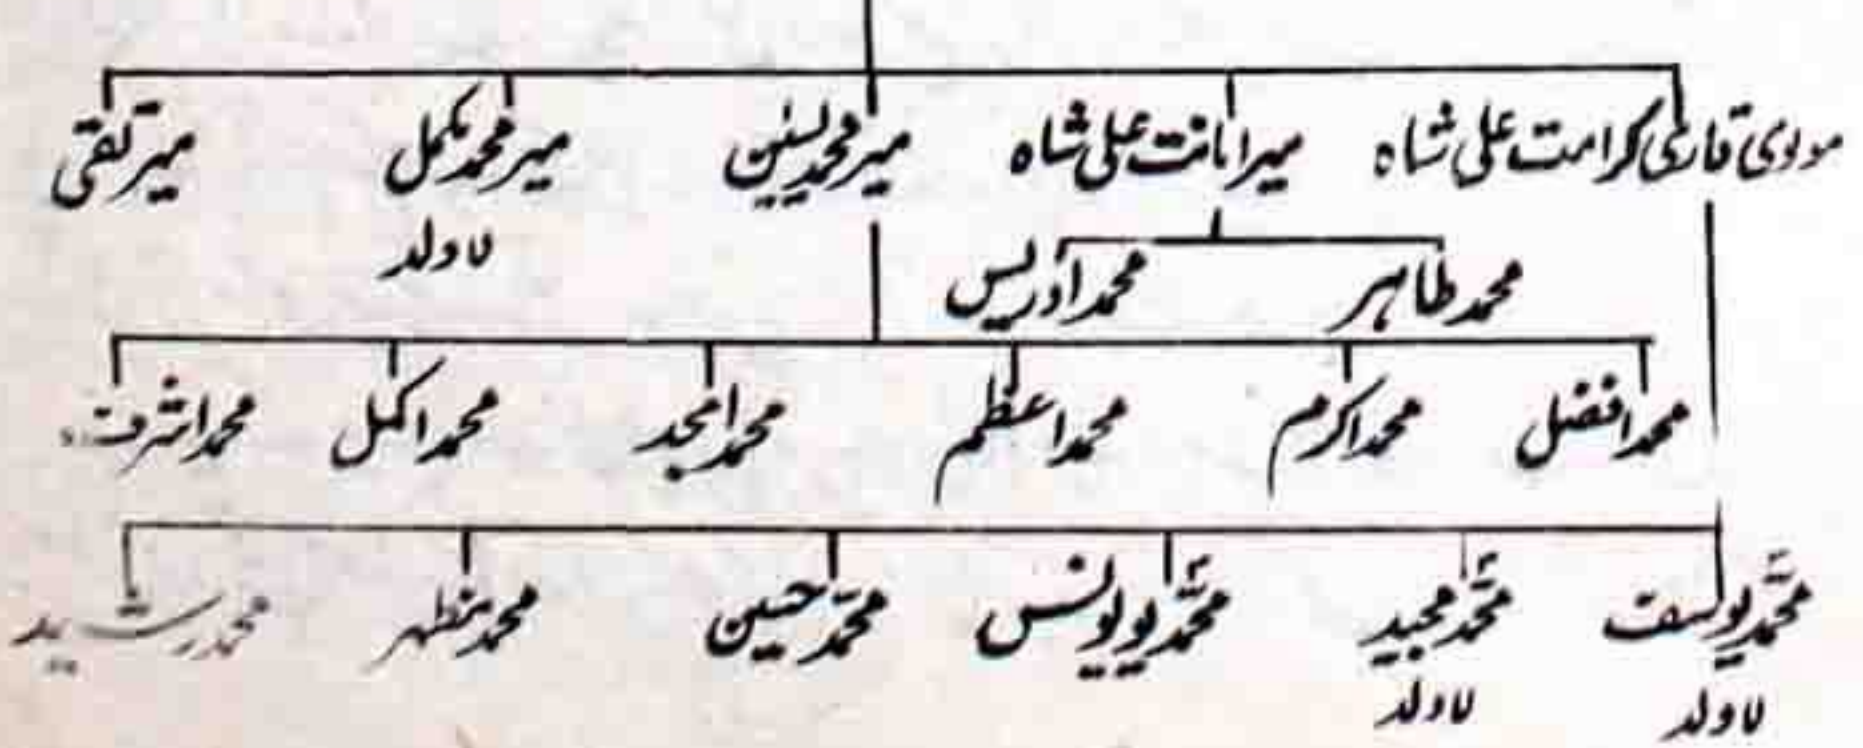 مولوی قاری کرامت علی شاہ میر امانت علی شاہ میر محمد یسٰین میر محمد مکمل میر تقی
لاولد
محمد طاہر محمد ادریس
محمد افضل محمد اکرم محمد اعظم محمد امجد محمد اکمل محمد اشرف
محمّد یوسف محمّد مجید محمّد یویونس محمّد حسین محمد مظہر محمد رشید
لاولد لاولد